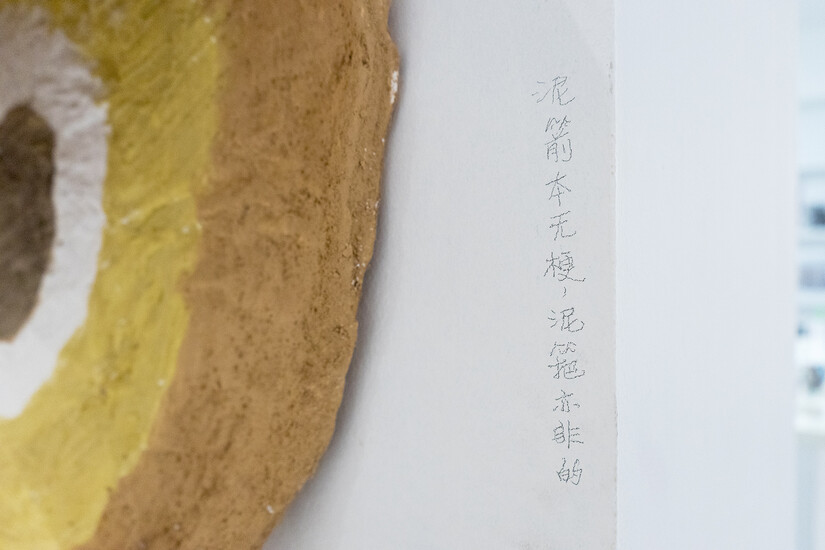 泥箭本无梗，泥筢亦非的